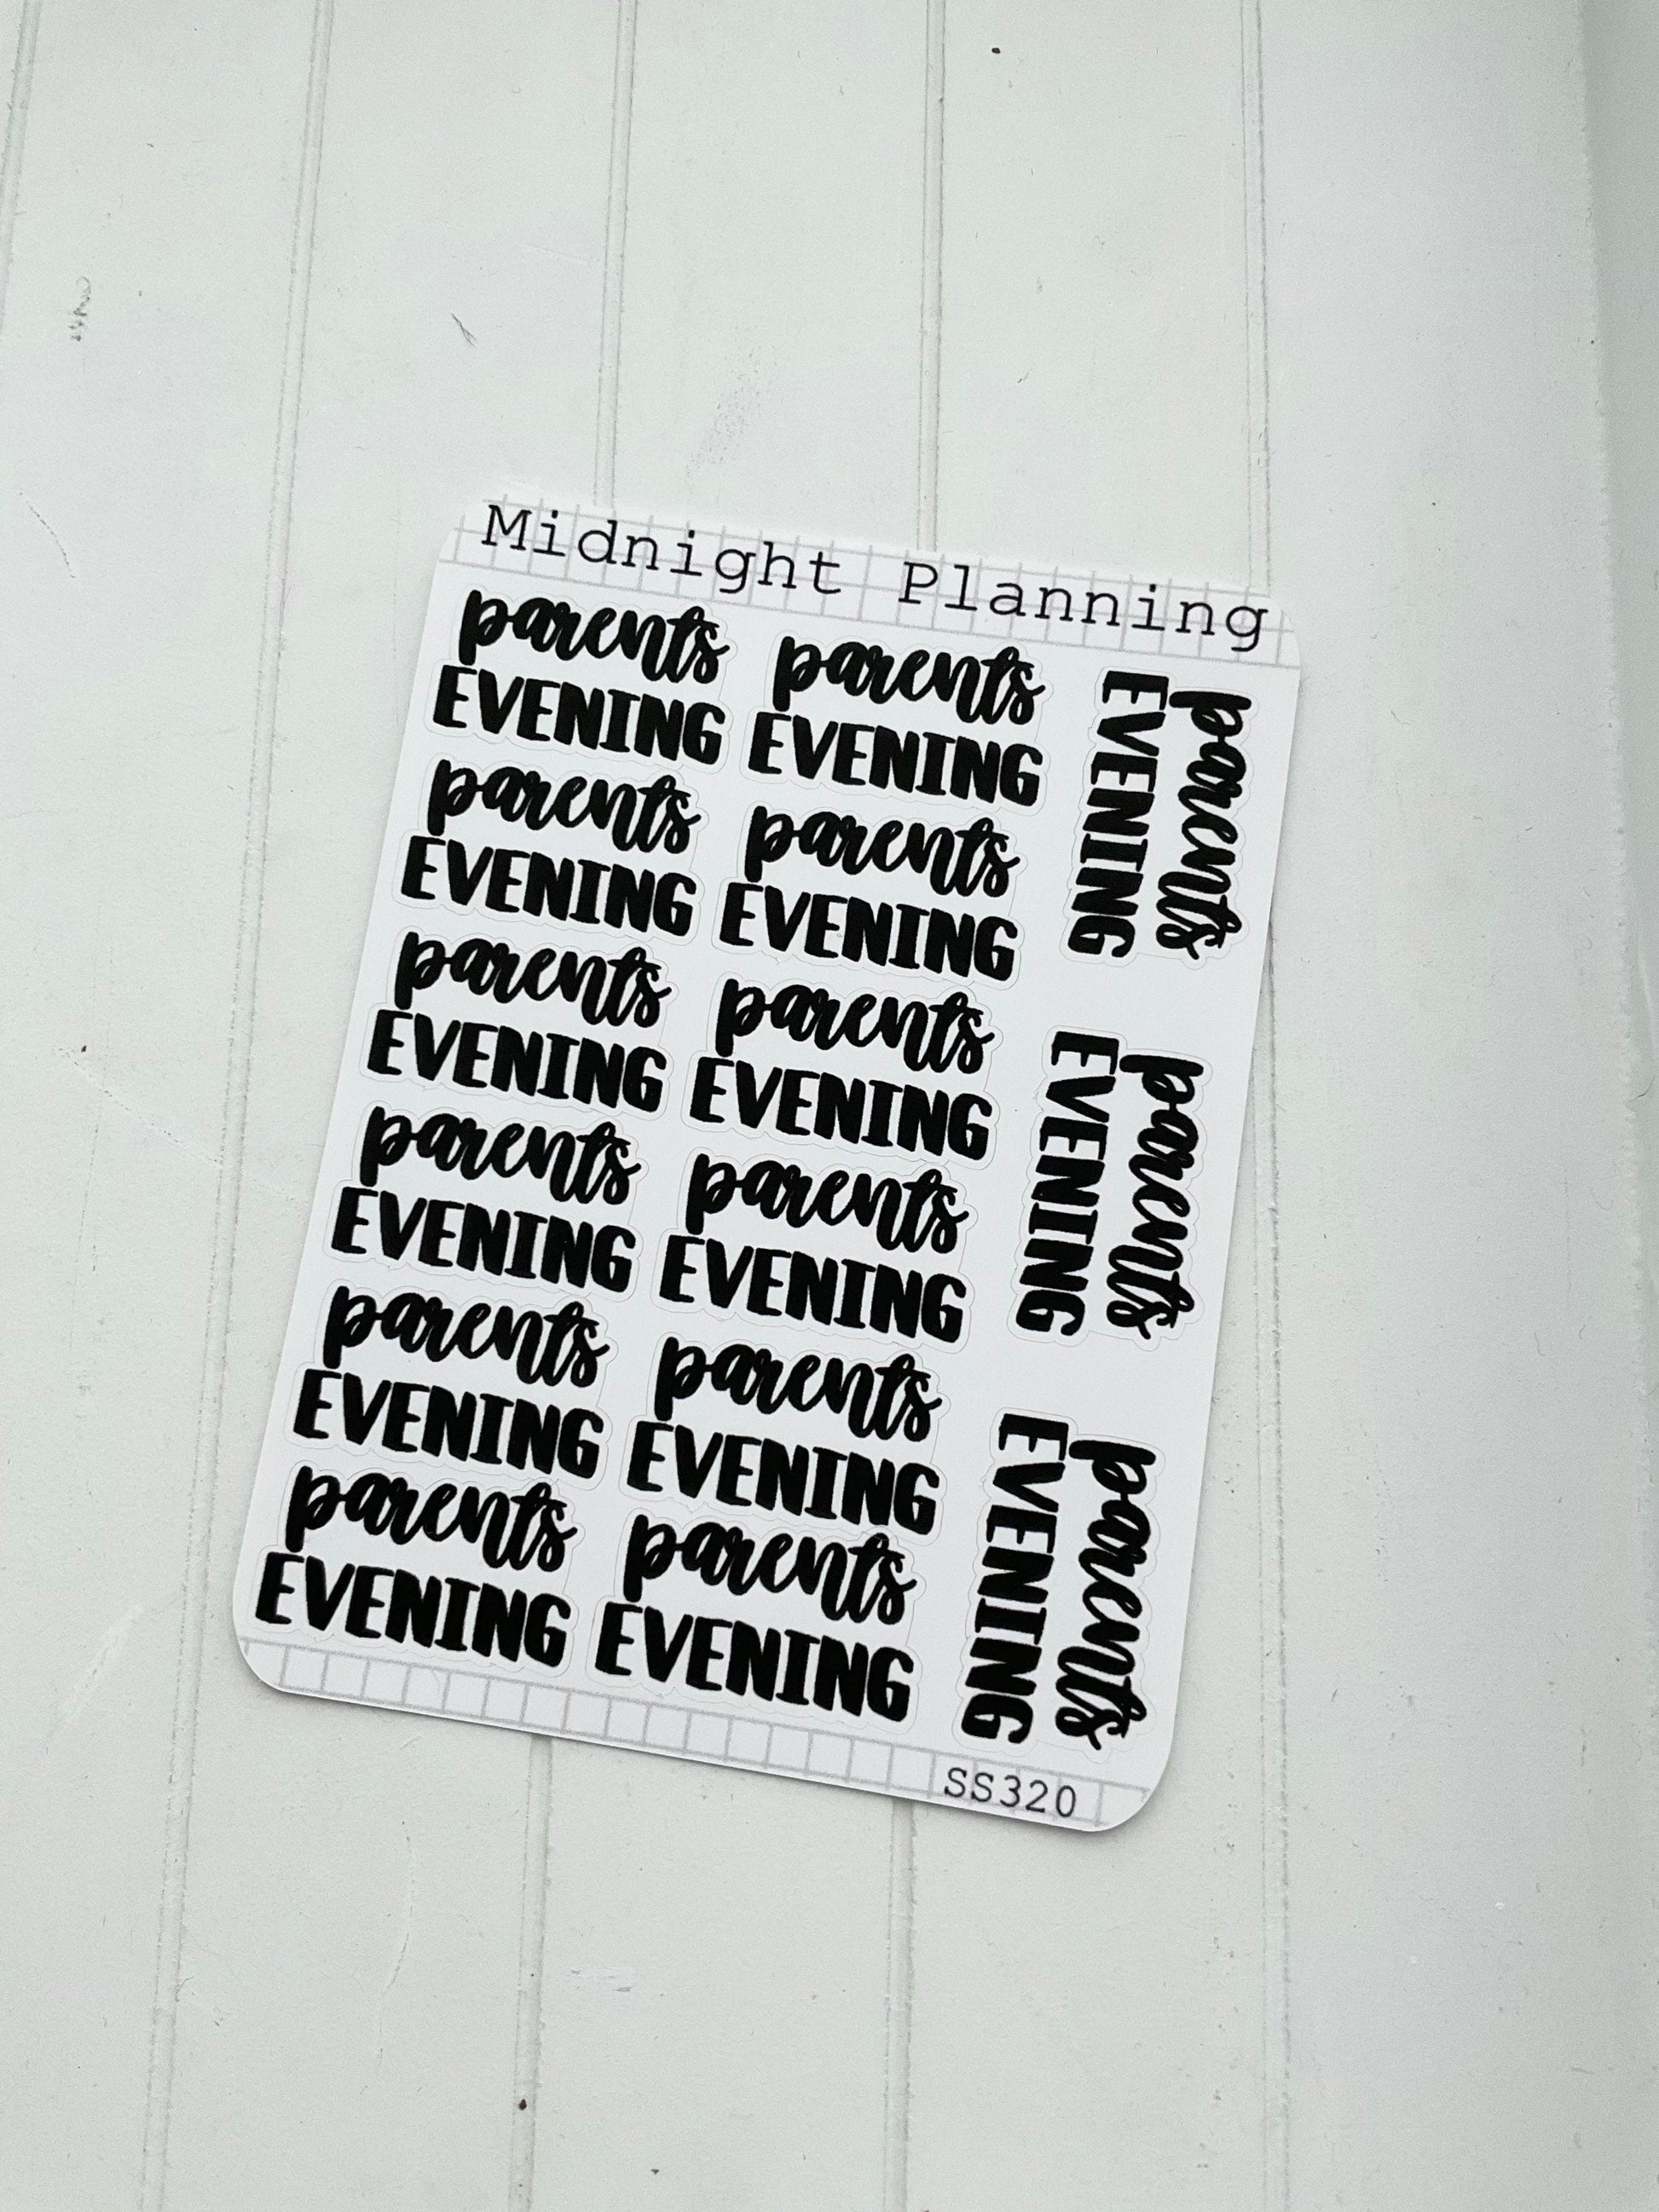 Midnight Planning
parents
EVENING
parents
EVENING
parents
EVENING
parents
EVENING
parents
EVENING
parents
EVENING
parents
EVENING
parents
EVENING
parents
EVENING
parents
EVENING
parents
EVENING
parents
EVENING
parents
EVENING
parents
EVENING
parents
EVENING
SS320